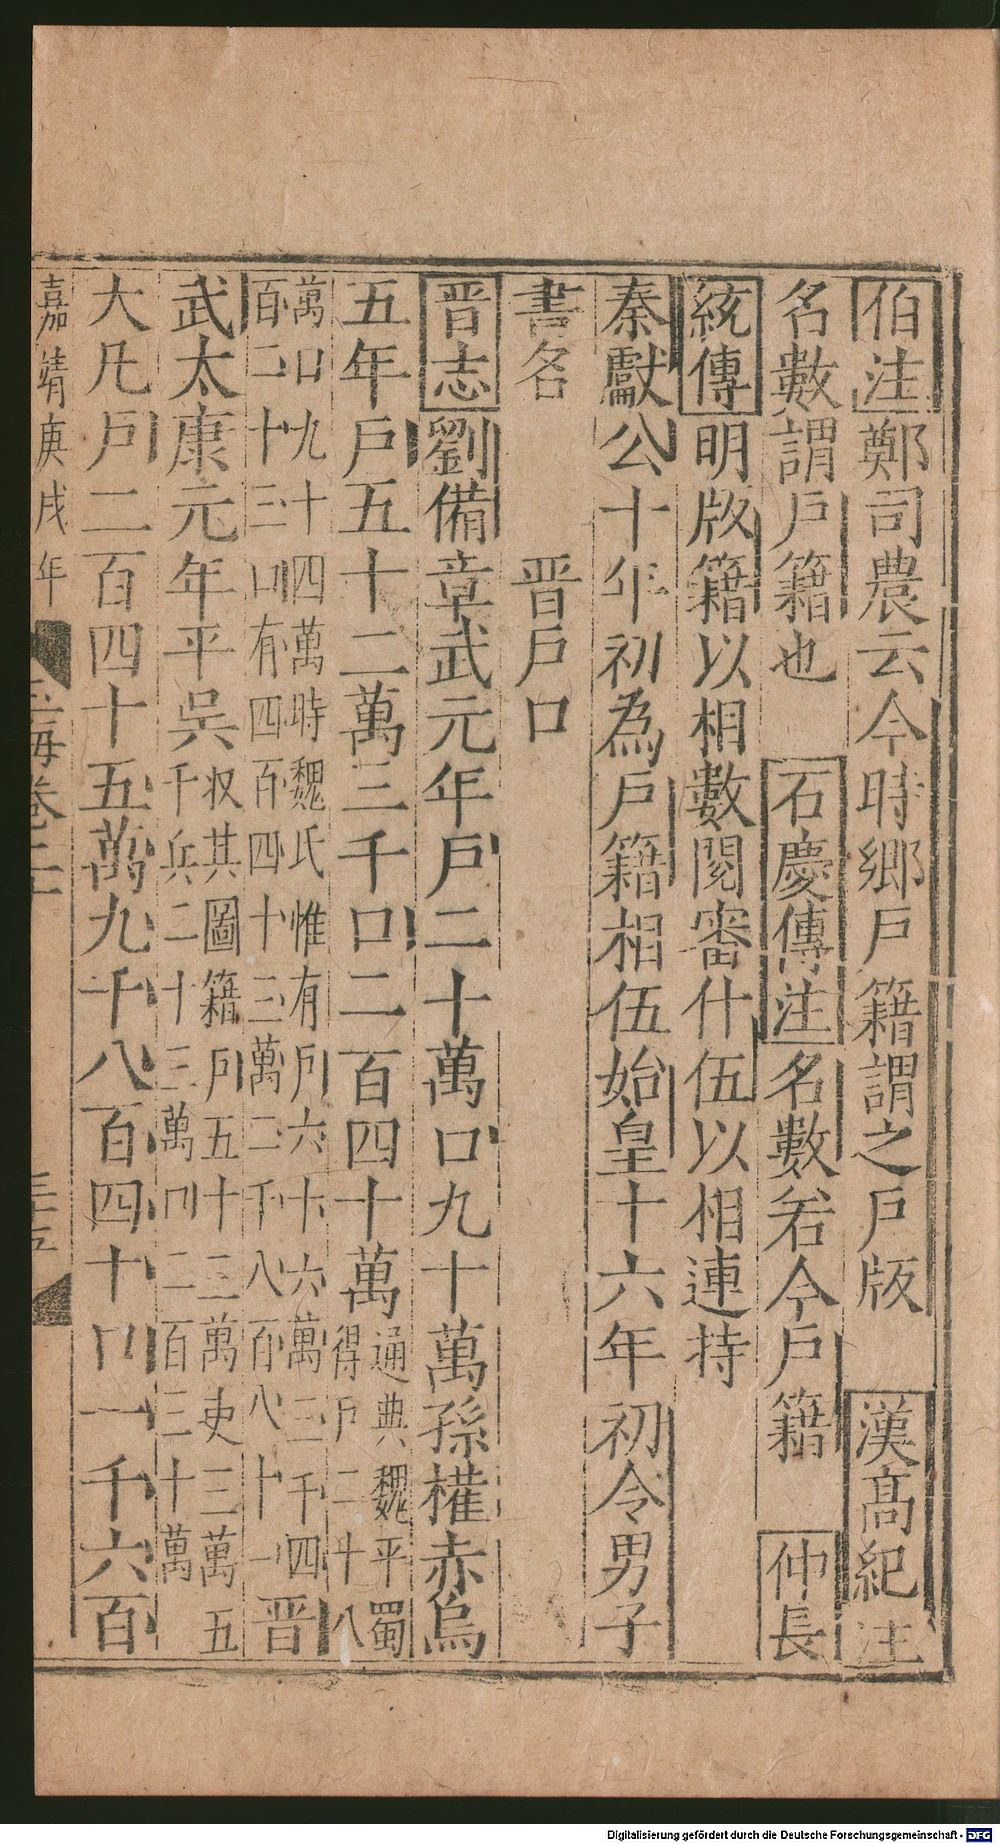 伯注鄭司農云今時鄉戶籍謂之戶版 漢高紀注
名數謂戶籍也 石慶傳注名數若今戶籍 仲長
統傳明版籍以相數閱審什伍以相連持
秦獻公十年初為戶籍相伍始皇十六年初令男子
書名
晉戶口
晉志劉備章武元年戶二十萬口九十萬孫權赤烏
五年戶五十二萬三千口二百四十萬通典魏平蜀
得戶二十八
萬口九十四萬時魏氏惟有戶六十六萬三千四
百二十三口有四百四十三萬二千八百八十一晉
武太康元年平吳收其圖籍戶五十三萬吏三萬五
千兵二十三萬口二百三十萬
大凡戶二百四十五萬九千八百四十口一千六百
嘉靖庚戌年 玉海卷二十 三十五
Digitalisierung gefördert durch die Deutsche Forschungsgemeinschaft - DFG